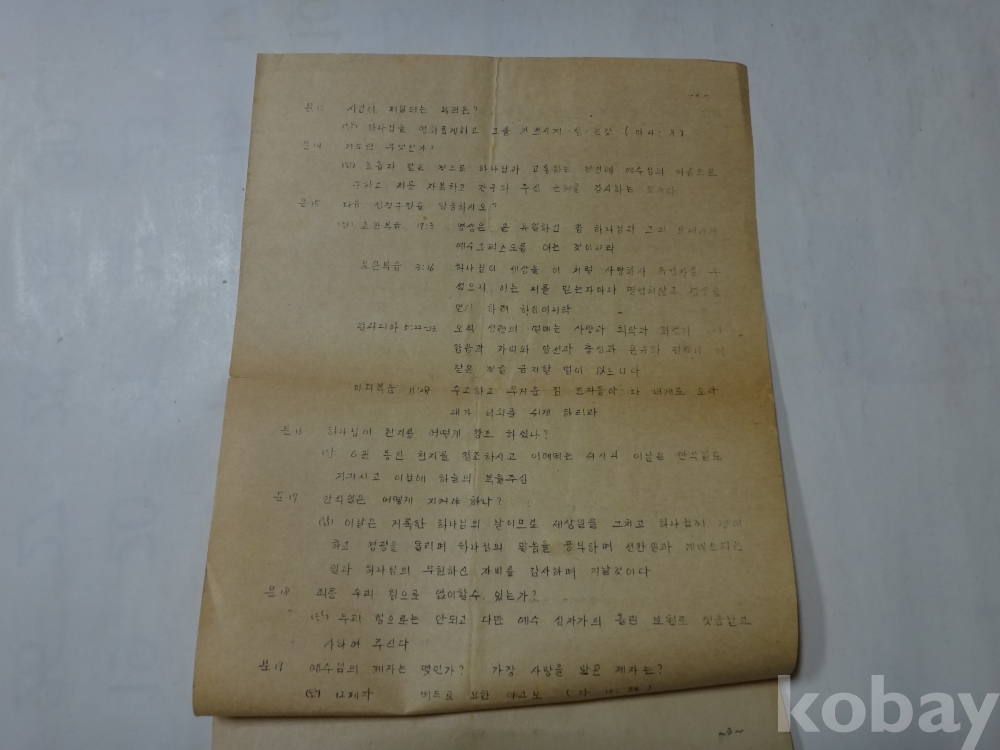 ~2~
사람의 제일되는 목적은?
(답) 하나님을 영화롭게하고 그를
문14 기도란 무엇인가?
(답) 같은 정으로 하나님과 교통하는 예수님의 이름으로
구하고 죄를 자복하고 주신 은혜를 감사하는
문15 다음 암송하시오?
(답) 요한복음 17:3 영생은 곧 유일하신 참 하나님과 그의
예수그리스도를 아는 것이니라
요한복음 3:16 하나님이 세상을 이 처럼 사랑하사 독생자를 주
셨으니 이는 저를 믿는자마다 멸망치않고 영생을
얻게 하려 하심이니라
갈라디아 5:22-23 오직 성령의 열매는 사랑과 희락과 화평과
참음과 자비와 양선과 충성과 온유와 절제니 이
같은 것을 금지할 법이 없느니라
마태복음 11:28 수고하고 무거운 짐 진자들아 다 내게로 오라
내가 너희를 쉬게 하리라
문16 하나님이 천지를 어떻게 창조 하셨나?
(답) 6일 동안 천지를 창조하시고 이레되는 이날은 안식일로
지키시고 이날에 하늘의 복을주심
문17 안식일은 어떻게 지켜야 하나?
(답) 이날은 거룩한 하나님의 날이므로 세상일을 그치고 하나님께 경배
하고 영광을 돌리며 하나님의 말씀을 공부하며 선한일과
일과 하나님의 무한하신 자비를 감사하며 지낼것이다
문18 죄를 우리 힘으로 없이할수 있는가?
(답) 우리 힘으로는 안되고 다만 예수 십자가의 흘린 보혈로 씻음받고
사하여 주신다
문19 예수님의 제자는 몇인가? 가장 사랑을 받은 제자는?
(답) 12제자 베드로 요한 야고보
~3~
kobay